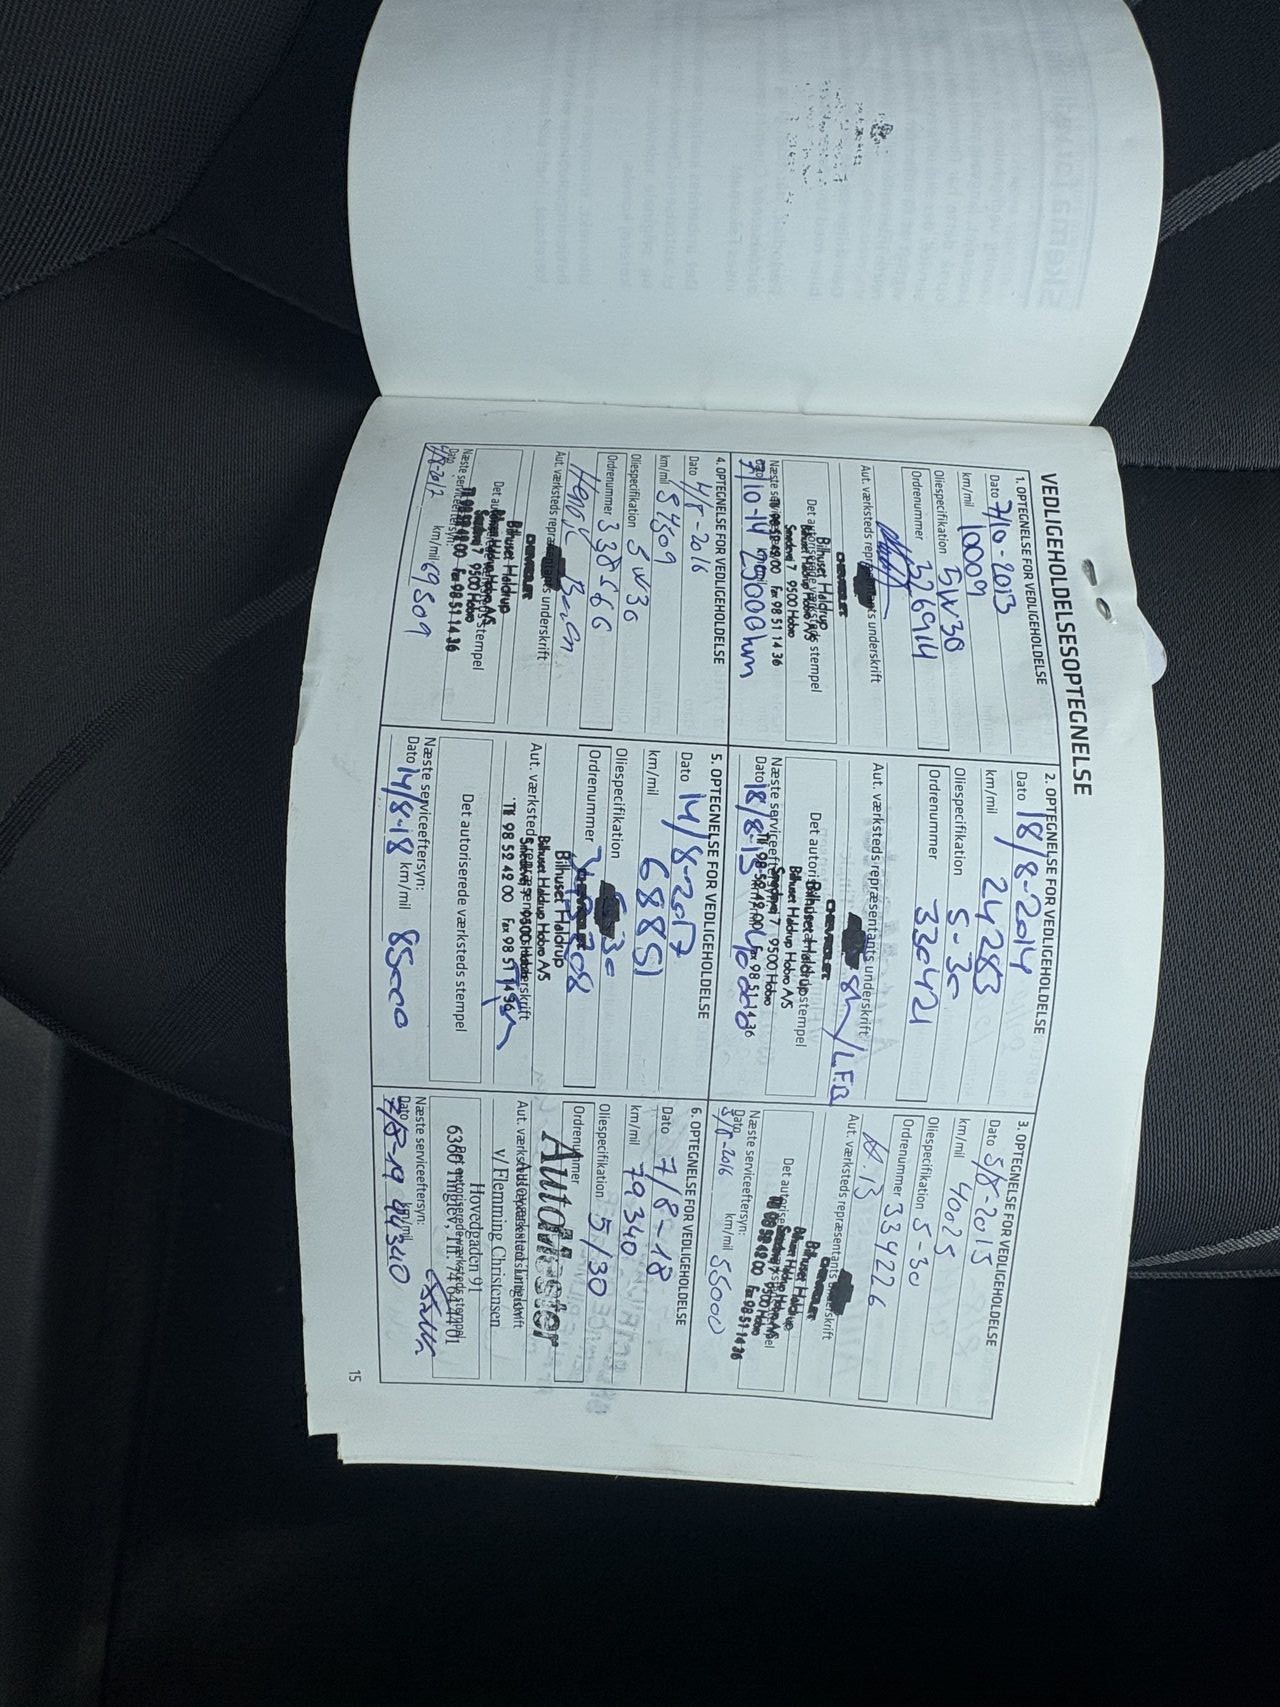 VEDLIGEHOLDELSESOPTEGNELSE
1. OPTEGNELSE FOR VEDLIGEHOLDELSE
Dato 7/10-2013
km/mil 10009
Oliespecifikation 5W30
Ordrenummer 326914
Aut. værksteds repræsentants underskrift
CHEVROLET
Bilhuset Haldrup
Det autoriserede værksteds stempel
Bilhuset Haldrup Hobro A/S
Smedevej 7 9500 Hobro
Tlf 98 52 42 00 Fax 98 51 14 36
Næste serviceeftersyn:
Dato 7/10-14 km/mil 25000km
2. OPTEGNELSE FOR VEDLIGEHOLDELSE
Dato 18/8-2014
km/mil 24283
Oliespecifikation 5-30
Ordrenummer 330421
Aut. værksteds repræsentants underskrift
/LFB
CHEVROLET
Bilhuset Haldrup
Det autoriserede værksteds stempel
Bilhuset Haldrup Hobro A/S
Smedevej 7 9500 Hobro
Tlf 98 52 42 00 Fax 98 51 14 36
Næste serviceeftersyn:
Dato 18/8-15 km/mil 40000
3. OPTEGNELSE FOR VEDLIGEHOLDELSE
Dato 5/8-2015
km/mil 40025
Oliespecifikation 5-30
Ordrenummer 334226
Aut. værksteds repræsentants underskrift
CHEVROLET
Bilhuset Haldrup
Det autoriserede værksteds stempel
Bilhuset Haldrup Hobro A/S
Smedevej 7 9500 Hobro
Tlf 98 52 42 00 Fax 98 51 14 36
Næste serviceeftersyn:
Dato 5/8-2016 km/mil 55000
4. OPTEGNELSE FOR VEDLIGEHOLDELSE
Dato 4/8-2016
km/mil 54309
Oliespecifikation 5W30
Ordrenummer 338566
Aut. værksteds repræsentants underskrift
CHEVROLET
Bilhuset Haldrup
Det autoriserede værksteds stempel
Bilhuset Haldrup Hobro A/S
Smedevej 7 9500 Hobro
Tlf 98 52 42 00 Fax 98 51 14 36
Næste serviceeftersyn:
Dato 4/8-2017 km/mil 69309
5. OPTEGNELSE FOR VEDLIGEHOLDELSE
Dato 14/8-2017
km/mil 68851
Oliespecifikation
Ordrenummer
CHEVROLET
Bilhuset Haldrup
Aut. værksteds repræsentants underskrift
Bilhuset Haldrup Hobro A/S
Smedevej 7 9500 Hobro
Tlf 98 52 42 00 Fax 98 51 14 36
Det autoriserede værksteds stempel
Næste serviceeftersyn:
Dato 14/8-18 km/mil 85000
6. OPTEGNELSE FOR VEDLIGEHOLDELSE
Dato 7/8-18
km/mil 79340
Oliespecifikation 5/30
Ordrenummer
Automester
Aut. værksteds repræsentants underskrift
v/ Flemming Christensen
Hovedgaden 91
Det autoriserede værksteds stempel
Næste serviceeftersyn:
Dato 7/8-19 km/mil 94340
15